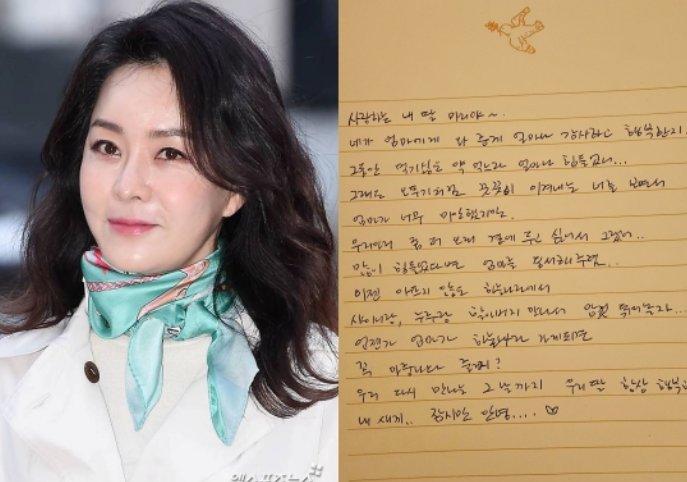 사랑하는 내 딸 마리야~.
네가 엄마에게 와 준게 얼마나 감사하고 행복한지.
그동안 먹기싫은 약 먹느라 얼마나 힘들었니...
그래도 오뚜기처럼 꿋꿋이 이겨내는 너를 보면서
엄마가 너무 미안했지만.
우리마리 좀 더 오래 곁에 두고 싶어서 그랬어..
많이 힘들었다면 엄마를 용서해주렴...
이젠 아프지 않은 하늘나라에서
샤이니랑, 누누랑 힘내지 말라서 맘껏 뛰어놀자...
언젠가 엄마가 하늘나라 가게되면
꼭 마중나와 줄꺼지?
우리 다시 만나는 그 날까지 우리딸 항상 행복
내 새끼.. 잠시만 안녕....♡
엑스포츠뉴스